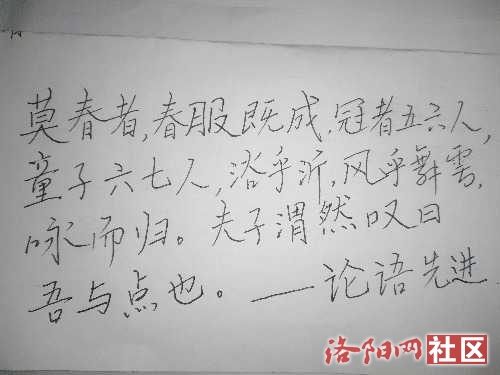 莫春者,春服既成,冠者五六人,
童子六七人,浴乎沂,风乎舞雩,
咏而归。夫子渭然叹曰
吾与点也。——论语先进
洛阳网社区